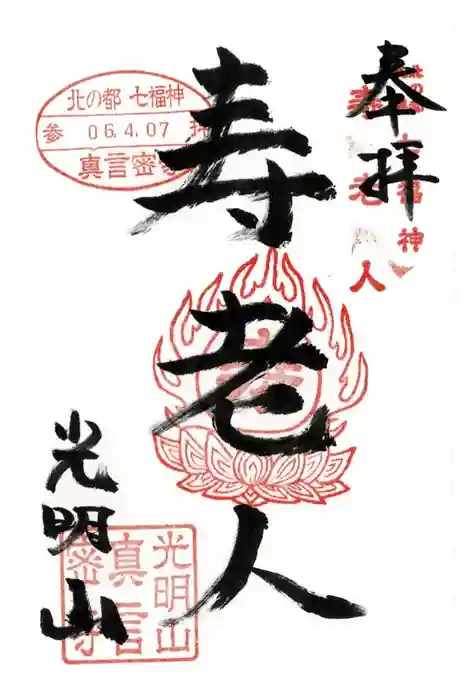 奉拝
北の都
七福神
寿老人
寿老人
北の都 七福神
参 06.4.07 拝
真言密寺
光明山
光明山
真言
密寺